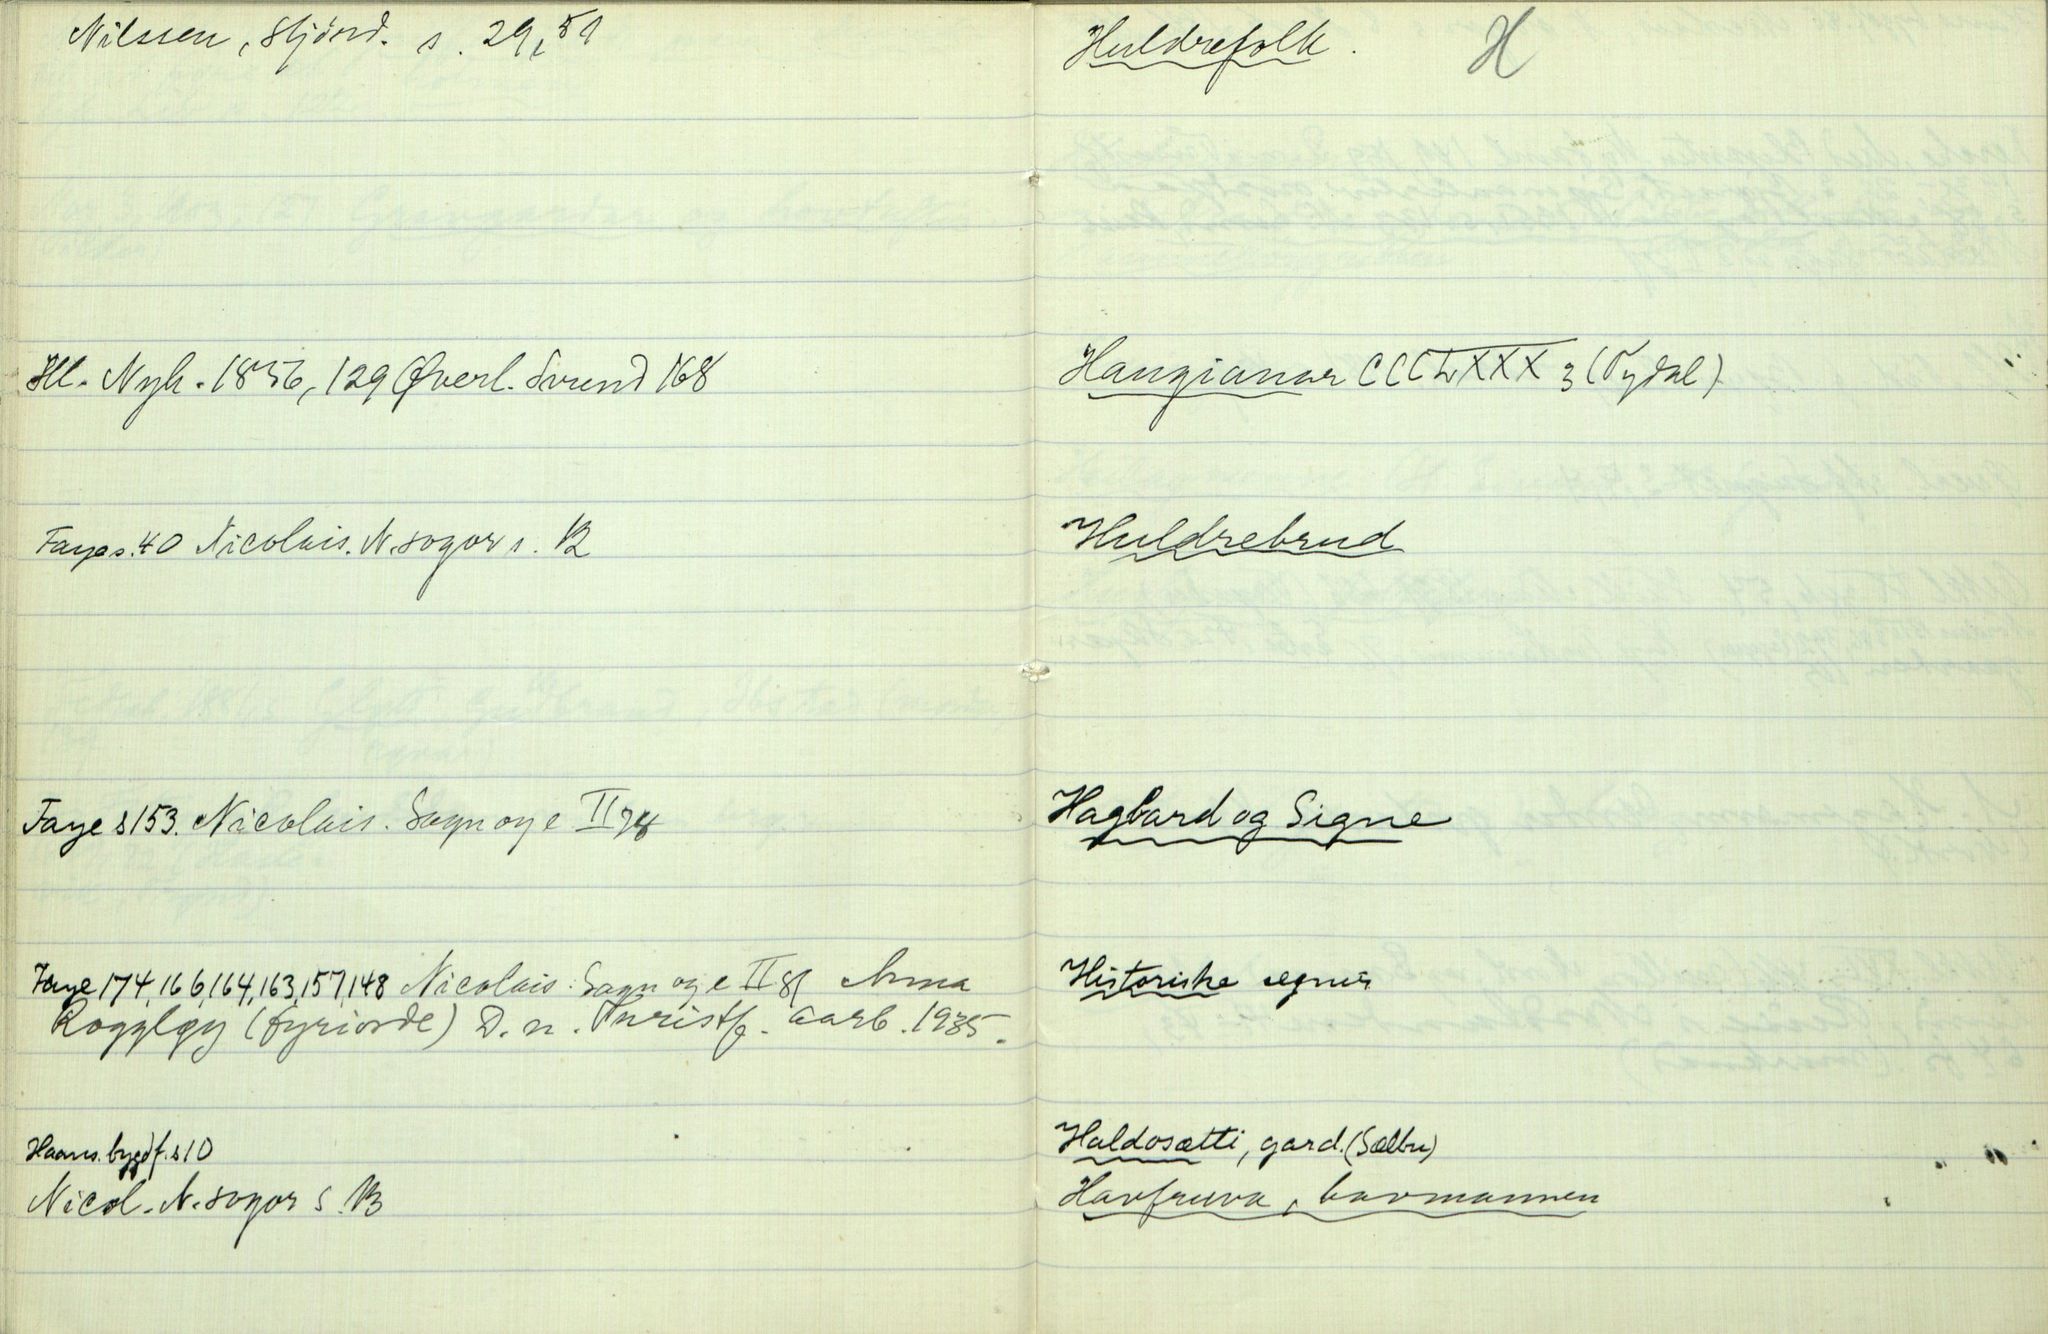 Nilssen, Stjørd. s. 29, 51
Ill. Nyh. 1856, 129 Øverl. Svund 168
Faye s. 40 Nicolais. N. sogor s. 12
Faye s 153. Nicolais. Sagn og e II 78
Faye 174, 166, 164, 163, 157, 148 Nicolais. Sagn og e II 81 Anna
(fyriorde) D. n. Turistf. aarb. 1935.
bygdf. s 10
Nicol. N. sogor s. 13
Huldrefolk. H
Haugianar CCCLXXX 3 (Tydal)
Huldrebrud
Hagbard og Signe
Historiske segner
Haldosætti, gard. (Sælbu)
Havfruva, havmannen